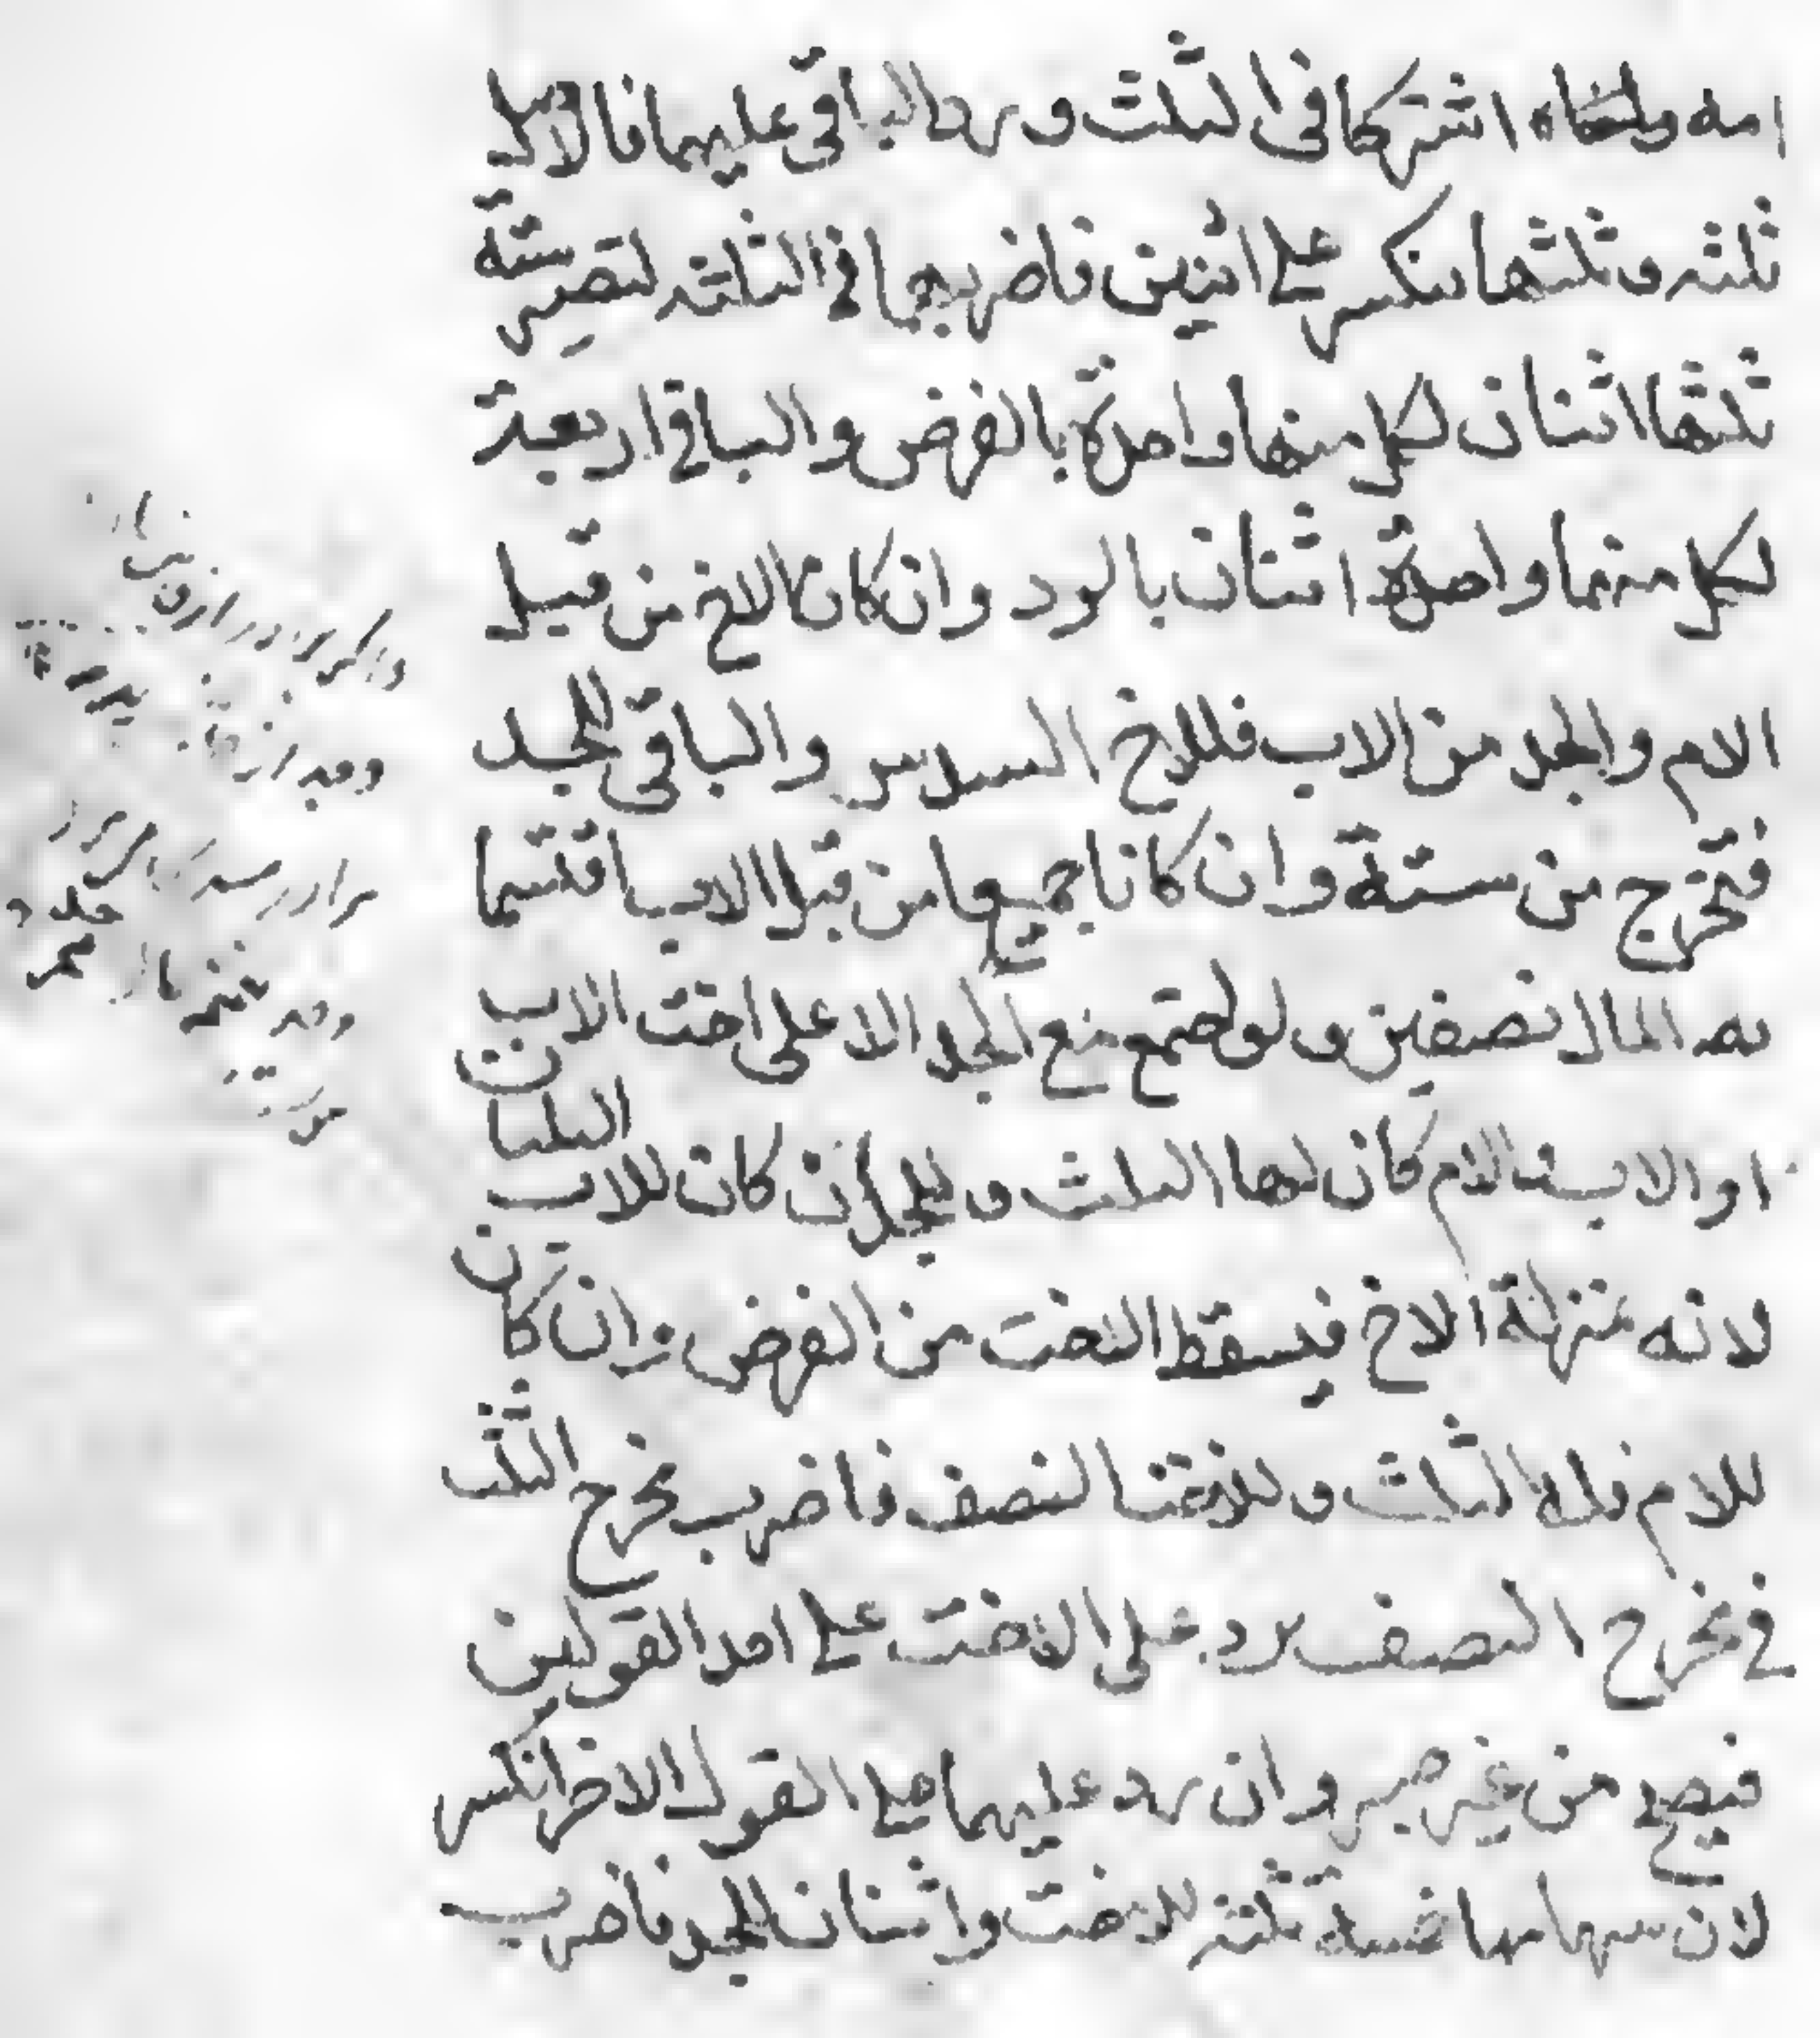 امه واخاه اشتركا في الثلث ورد الباقي عليهما فالاصل
ثلثه وثلثها ينكسر على اثنين فاضربهما في الثلثه لتصير ستة
ثلثها اثنان لكل منهما واحدة بالفرض والباقي اربعة
لكل منهما واحدة اثنان بالرد وان كان الاخ من قبل
الام والجد من الاب فللاخ السدس والباقي للجد
فتخرج من ستة وان كانا جميعا من قبل الاب اقتسما
المال نصفين ولو اجتمع مع الجد الاعلى اخت الاب
او الاب والام كان لها الثلث وللجد الثلثان ان كان للاب
لانه بمنزلة الاخ فيسقط الاخت من الفرض وان كان
للام فله الثلث وللاخت النصف فاضرب مخرج الثلث
في مخرج النصف يرد على الاخت على احد القولين
فيصح من غير جبر وان رد عليهما على القول الاخر انكسر
لان سهامها خمسة ثلثه للاخت واثنان للجد فاضرب